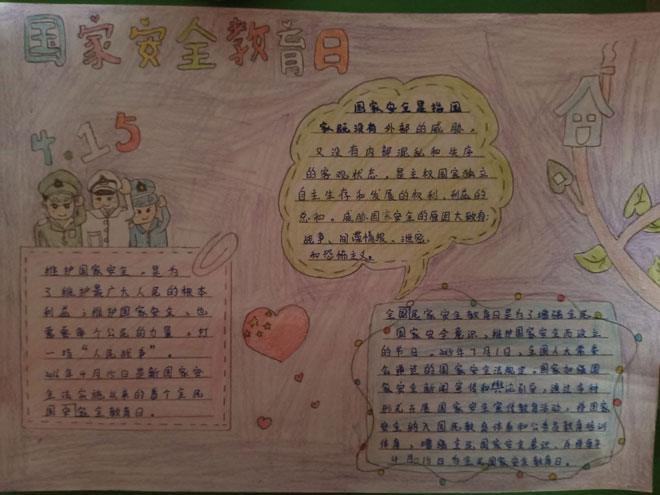 国家安全教育日
4.15
国家安全是指国
家既没有外部的威胁，
又没有内部混乱和失序
的客观状态，是主权国家独立
自主生存和发展的权利、利益的
总和。威胁国家安全的原因大致有：
战争、间谍情报、泄密、
和恐怖主义。
维护国家安全，是为
了维护最广大人民的根本
利益；维护国家安全，也
需要每个公民的力量，打
一场“人民战争”。
2016年4月15日是新国家安
全法实施以来的首个全民
国家安全教育日。
全国民家安全教育日是为了增强全民
国家安全意识，维护国家安全而设立
的节日。2015年7月1日，全国人大常委
会通过的国家安全法规定，国家加强国
家安全新闻宣传和舆论引导，通过多种
形式开展国家安全宣传教育活动，将国家
安全纳入国民教育体系和公务员教育培训
体系，增强全民国家安全意识，
4月15日为全民国家安全教育日。